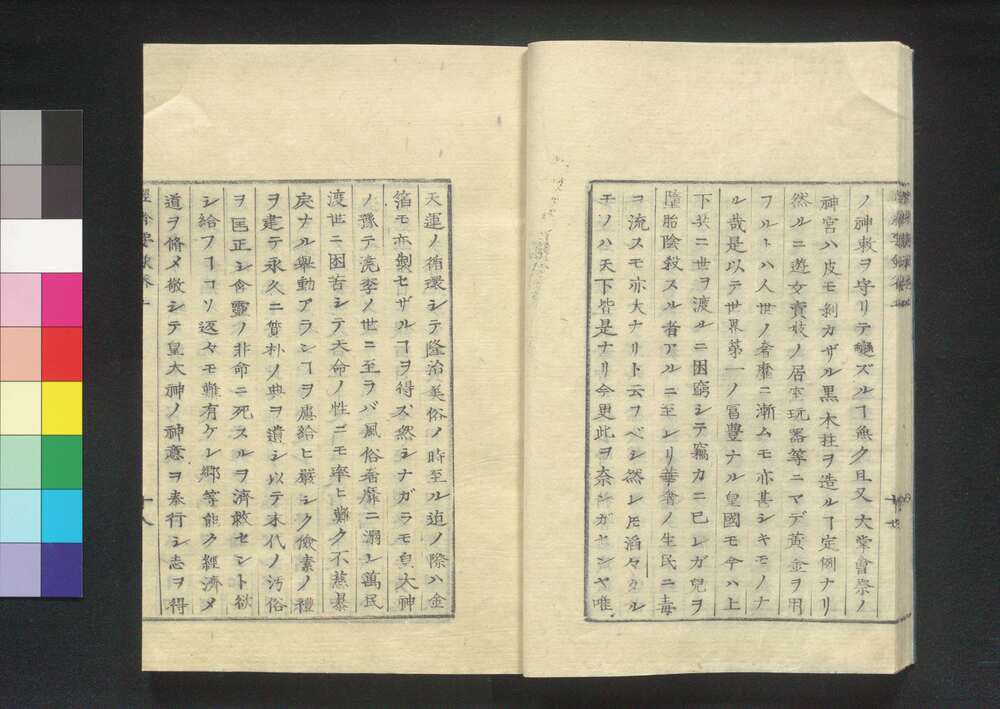 ノ神敕ヲ守リテ變ズルヿ無ク且又大嘗會祭ノ
神宮ハ皮モ剥カザル黒木柱ヲ造ルヿ定例ナリ
然ルニ遊女賣妓ノ居室玩器等ニマデ黄金ヲ用
フルトハ人世ノ奢靡ニ漸ムモ亦甚シキモノナ
ル哉是以テ世界第一ノ冨豊ナル皇國モ今ハ上
下共ニ世ヲ渡ルニ困窮シテ竊カニ已レガ兒ヲ
墮胎陰殺スル者アルニ至レリ華奢ノ生民ニ毒
ヲ流スモ亦大ナリト云フベシ然レ𪜈滔々タル
モノハ天下皆是ナリ今更此ヲ奈何ガセンヤ唯
天運ノ循環シテ隆治美俗ノ時至ル迠ノ際ハ金
箔モ亦製セザルヿヲ得ズ然シナガラモ皇大神
ノ豫テ澆季ノ世ニ至ラバ風俗奢靡ニ溺レ萬民
渡世ニ困苦シテ天命ノ性ニモ率ヒ難ク不慈暴
戻ナル擧動アランヿヲ慮給ヒ嚴シク儉素ノ禮
ヲ建テ永久ニ質朴ノ典ヲ遺シ以テ末代ノ汚俗
ヲ匡正シ含靈ノ非命ニ死スルヲ濟救セント欲
シ給フヿコソ返々モ難有ケレ郷等能ク經濟メ
道ヲ脩メ敬シテ皇大神ノ神意ヲ奉行シ志ヲ得
十八